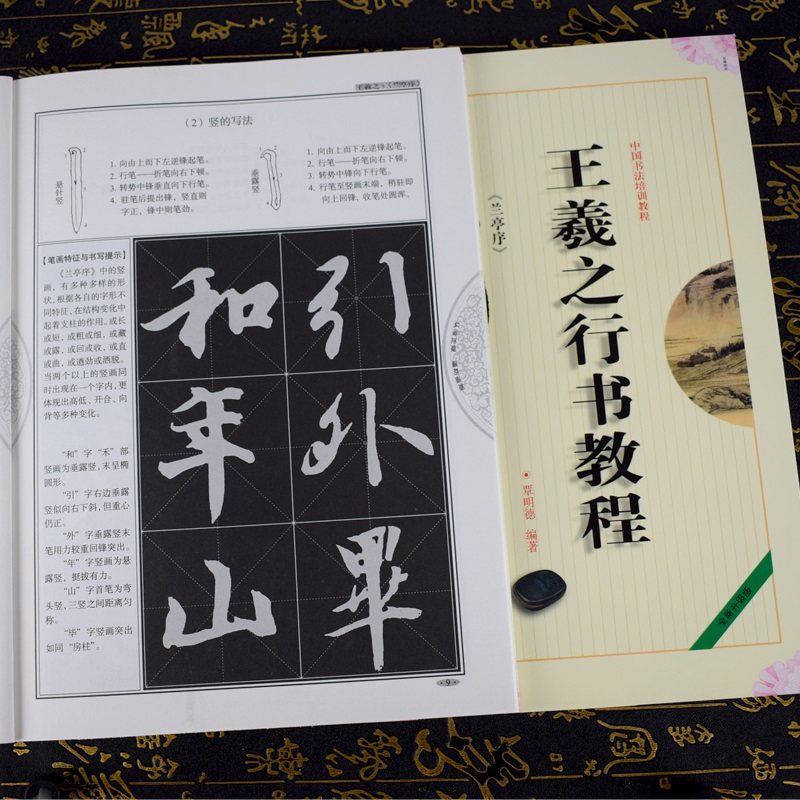 王羲之·《兰亭序》
（2）竖的写法
悬针竖
1. 向由上而下左逆锋起笔。
2. 行笔——折笔向右下顿。
3. 转势中锋垂直向下行笔。
4. 驻笔后提出锋，竖直则
字正，锋中则笔劲。
垂露竖
1. 向由上而下左逆锋起笔。
2. 行笔——折笔向右下顿。
3. 转势中锋向下行笔。
4. 行笔至竖画末端，稍驻即
向上回锋，收笔处圆浑。
【笔画特征与书写提示】
《兰亭序》中的竖
画，有多种多样的形
状，根据各自的字形不
同特征，在结构变化中
起着支柱的作用。或长
或短，或粗或细，或藏
或露，或回或收，或直
或曲，或遒劲或洒脱。
当两个以上的竖画同
时出现在一个字内，更
体现出高低、开合、向
背等多种变化。
“和”字“禾”部
竖画为垂露竖，末呈椭
圆形。
“引”字右边垂露
竖似向右下斜，但重心
仍正。
“外”字垂露竖末
笔用力较重回锋突出。
“年”字竖画为悬
露竖，挺拔有力。
“山”字首笔为弯
头竖，三竖之间距离匀
称。
“毕”字竖画突出
如同“房柱”。
和引
年外
山畢
·9·
中国书法培训教程
王羲之行书教程
《兰亭序》
覃明德 编著
全新升级版